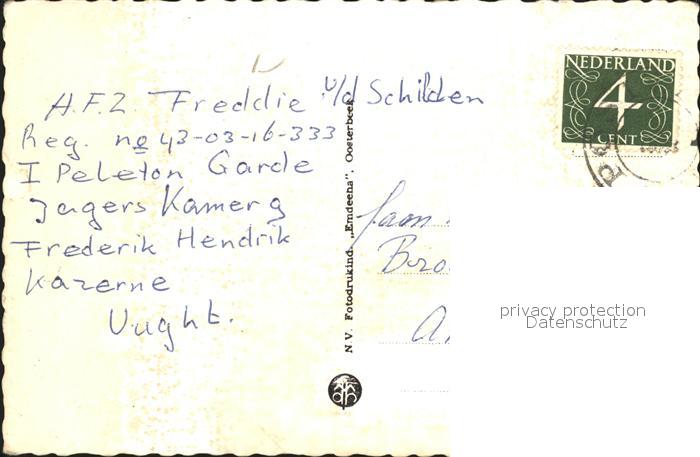 A.F.Z. Freddie v/d Schilden
Reg. no 43-03-16-333
I Peleton Garde
Jagers Kamer 9
Frederik Hendrik
Kazerne
Vught.
N.V. Fotodrukind. „Emdeena”, Oosterbeek
NEDERLAND
4
CENT
privacy protection
Datenschutz